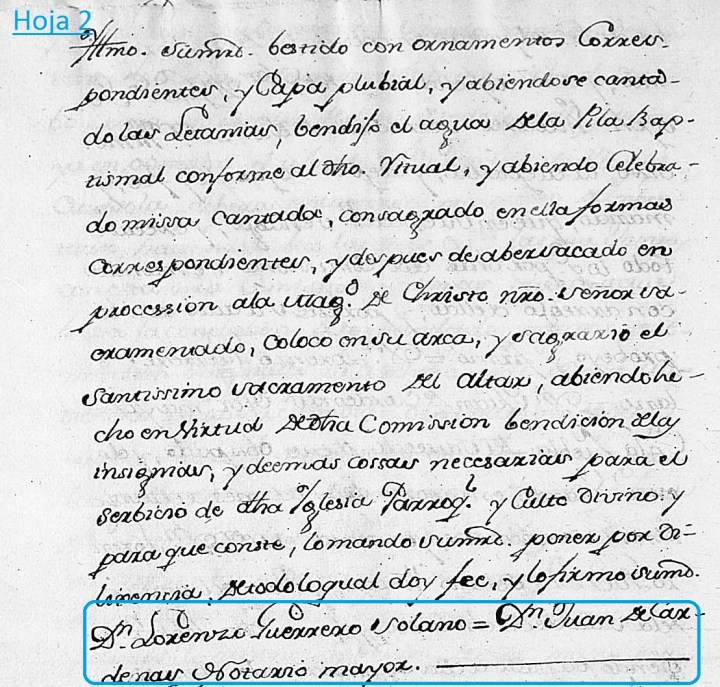 Hoja 2
Iltmo. sumrd. bestido con ornamentos Corres-
pondientes, y Capa plubial, y abiendose canta-
do las Letanias, bendijo el agua dela Pila Bap-
tismal conforme al dho. Ritual, y abiendo Celebra-
do missa cantada, consagrado en ella formas
Correspondientes, y despues de aber sacado en
procession ala Mag.d de Christo nro. Señor sa-
cramentado, coloco en su arca, y sagrario el
Santissimo Sacramento del Altar, abiendo he-
cho en Virtud de dha Comission bendición delas
insignias, y deemas cossas necesarias para el
serbicio de dha Iglesia Parroq.l y Culto Divino: y
para que conste, lo mando sumrd. poner por di-
ligencia, de todo lo qual doy fee, y lo firmo sumd.
Dn. Lorenzo Guerrero Solano = Dn. Juan de Car-
denas Notario mayor.